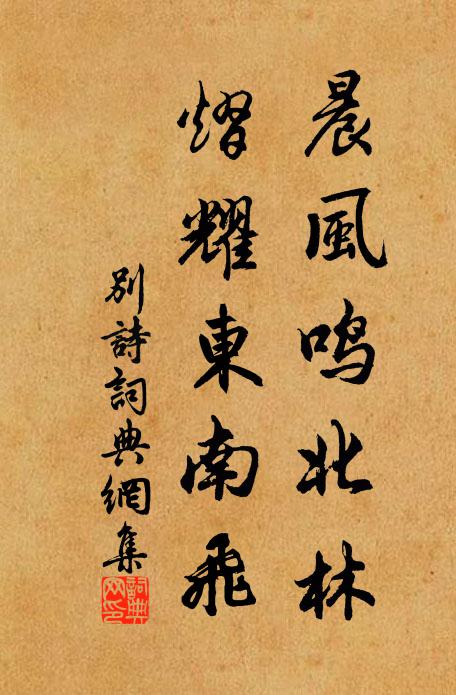 晨風鳴北林
熠耀東南飛
別詩詞典網集
詞典
网印